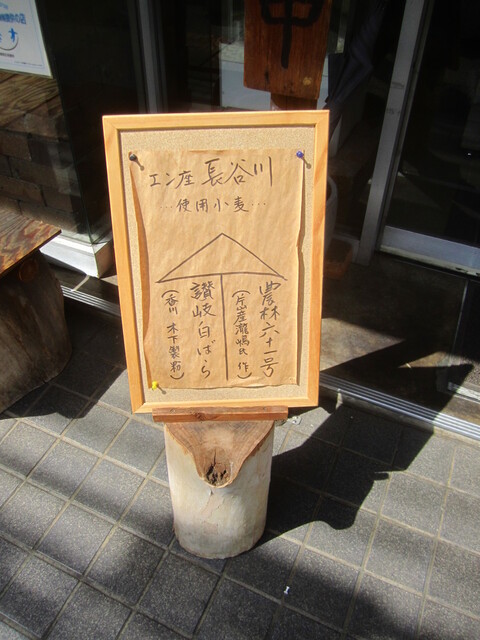 申
エン座 長谷川
…使用小麦…
農林六十一号
(片山産瀧嶋氏 作)
讃岐白ばら
(香川 木下製粉)